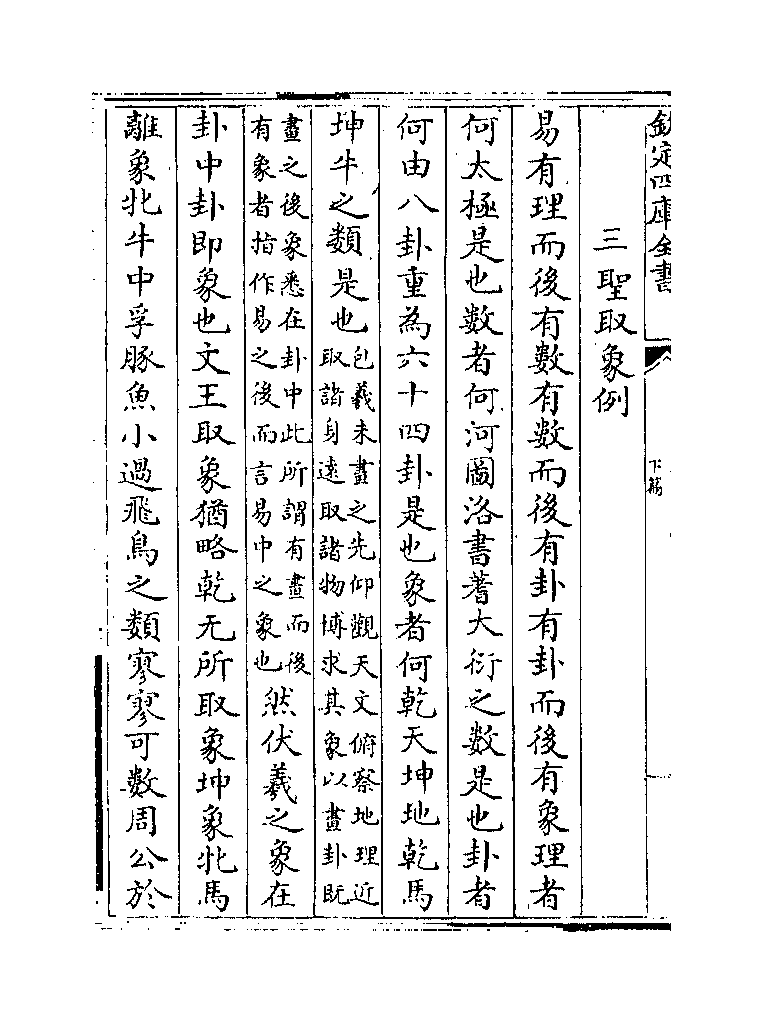 欽定四庫全書
下篇
三聖取象例
易有理而後有數有數而後有卦有卦而後有象理者
何太極是也數者何河圖洛書蓍大衍之數是也卦者
何由八卦重為六十四卦是也象者何乾天坤地乾馬
坤牛之類是也包羲未畫之先仰觀天文俯察地理近
取諸身遠取諸物博求其象以畫卦既
畫之後象悉在卦中此所謂有畫而後
有象者指作易之後而言易中之象也然伏羲之象在
卦中卦即象也文王取象猶略乾无所取象坤象牝馬
離象牝牛中孚豚魚小過飛鳥之類寥寥可數周公於